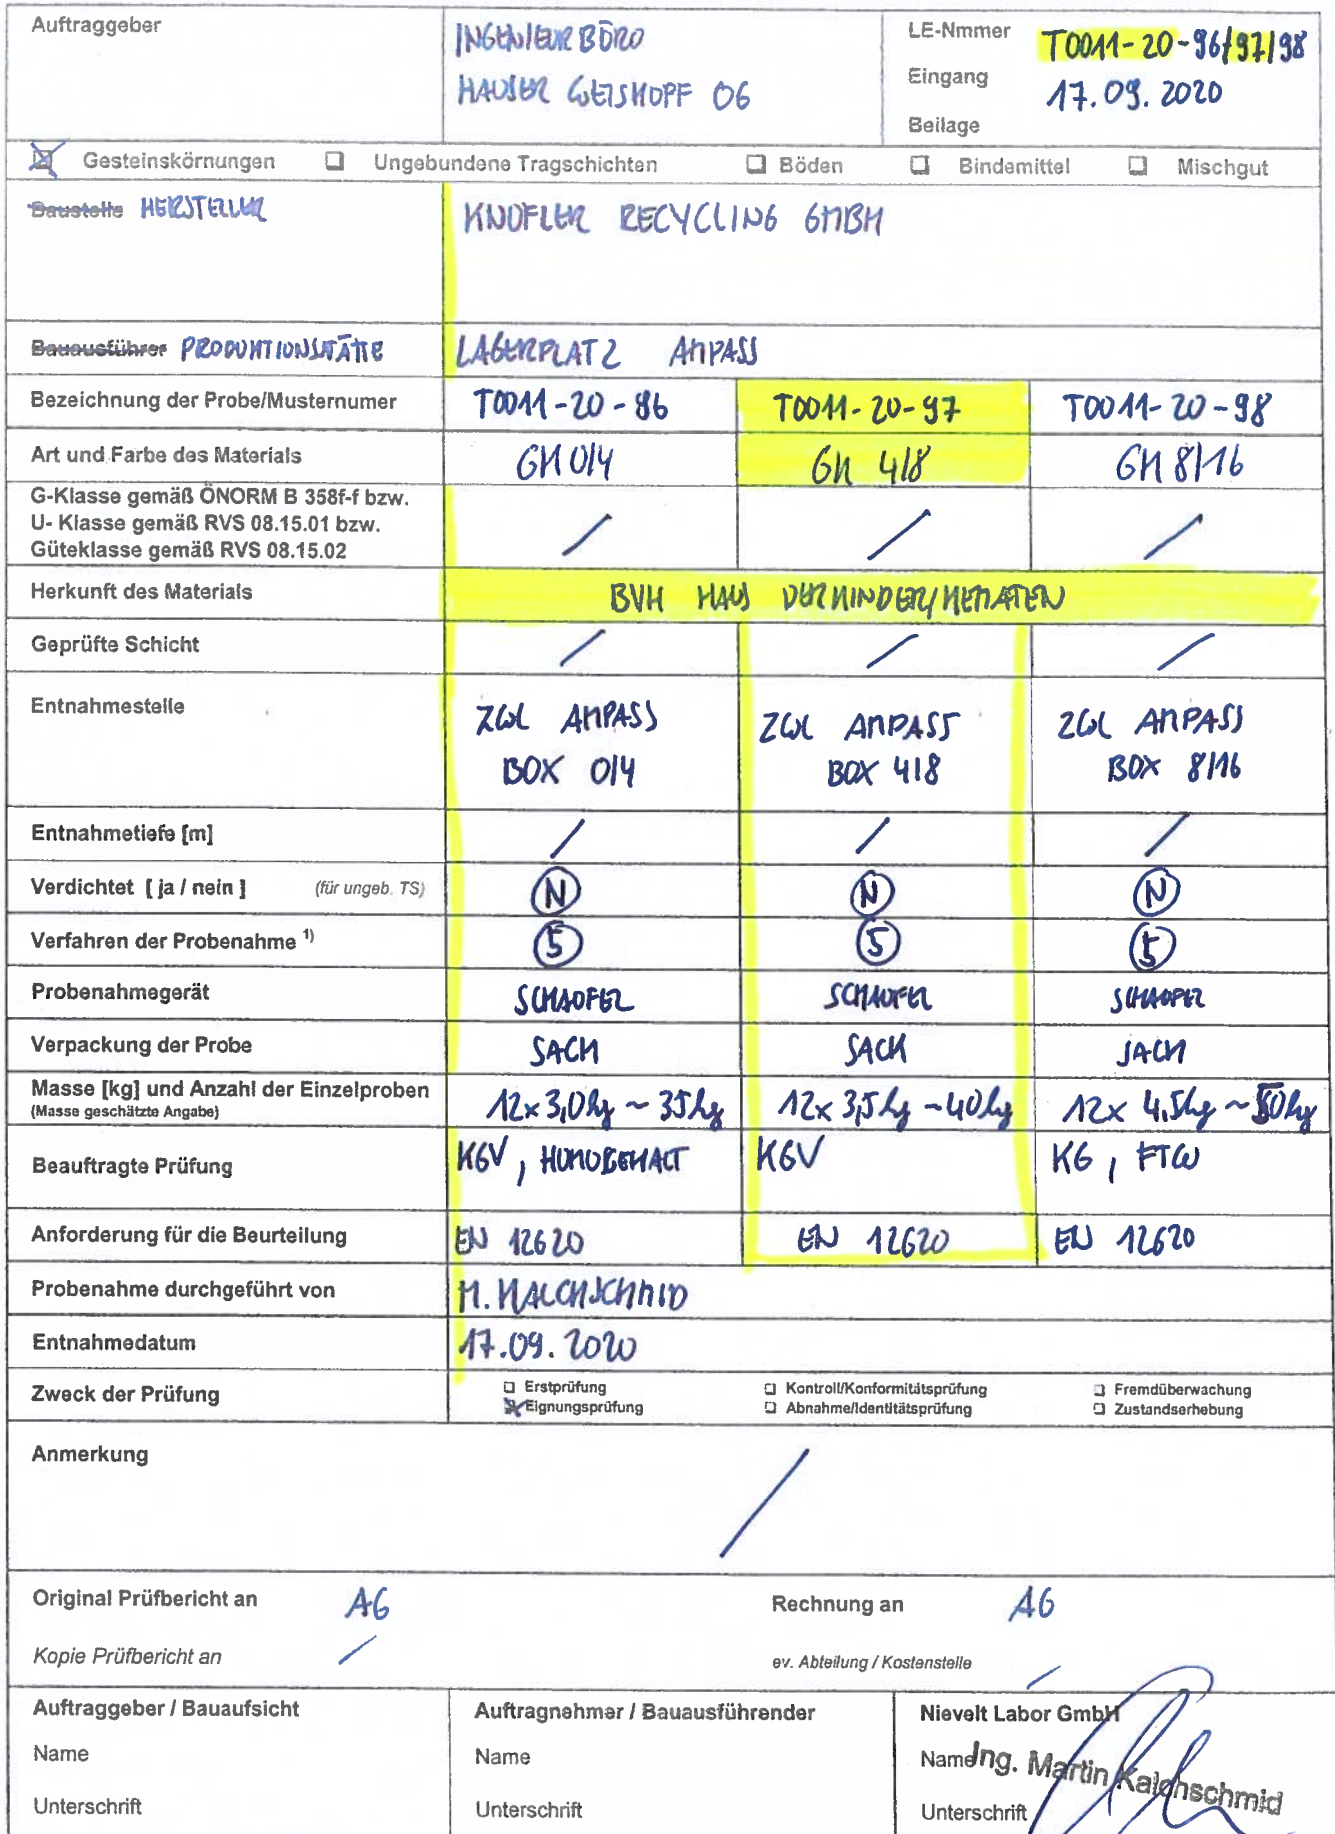 Auftraggeber
INGENIEURBÜRO
HAUSER GEISHOPF OG
LE-Nmmer T0011-20-96/97/98
Eingang 17.09.2020
Beilage
Gesteinskörnungen Ungebundene Tragschichten Böden Bindemittel Mischgut
Baustelle HERSTELLER KNOFLER RECYCLING GMBH
Bauausführer PRODUKTIONSSTÄTTE LAGERPLATZ AMPASS
Bezeichnung der Probe/Musternumer T0011-20-96 T0011-20-97 T0011-20-98
Art und Farbe des Materials GK 0/4 GK 4/8 GK 8/16
G-Klasse gemäß ÖNORM B 358f-f bzw.
U- Klasse gemäß RVS 08.15.01 bzw.
Güteklasse gemäß RVS 08.15.02
/ / /
Herkunft des Materials BVH HAUS
Geprüfte Schicht / / /
Entnahmestelle ZWL AMPASS ZWL AMPASS ZWL AMPASS
BOX 0/4 BOX 4/8 BOX 8/16
Entnahmetiefe [m] / / /
Verdichtet [ ja / nein ] (für ungeb. TS) N N N
Verfahren der Probenahme 1) 5 5 5
Probenahmegerät SCHAUFEL SCHAUFEL SCHAUFEL
Verpackung der Probe SACK SACK SACK
Masse [kg] und Anzahl der Einzelproben 12x 3,0kg ~ 35kg 12x 3,5kg ~40kg 12x 4,5kg ~ 50kg
(Masse geschätzte Angabe)
Beauftragte Prüfung KGV, HUMUSGEHALT KGV KG, FTW
Anforderung für die Beurteilung EN 12620 EN 12620 EN 12620
Probenahme durchgeführt von M. KALCHSCHMID
Entnahmedatum 17.09.2020
Zweck der Prüfung
Erstprüfung Kontroll/Konformitätsprüfung Fremdüberwachung
Eignungsprüfung Abnahme/Identitätsprüfung Zustandserhebung
Anmerkung /
Original Prüfbericht an AG Rechnung an AG
Kopie Prüfbericht an / ev. Abteilung / Kostenstelle /
Auftraggeber / Bauaufsicht Auftragnehmer / Bauausführender Nievelt Labor GmbH
Name Name Name Ing. Martin Kalchschmid
Unterschrift Unterschrift Unterschrift